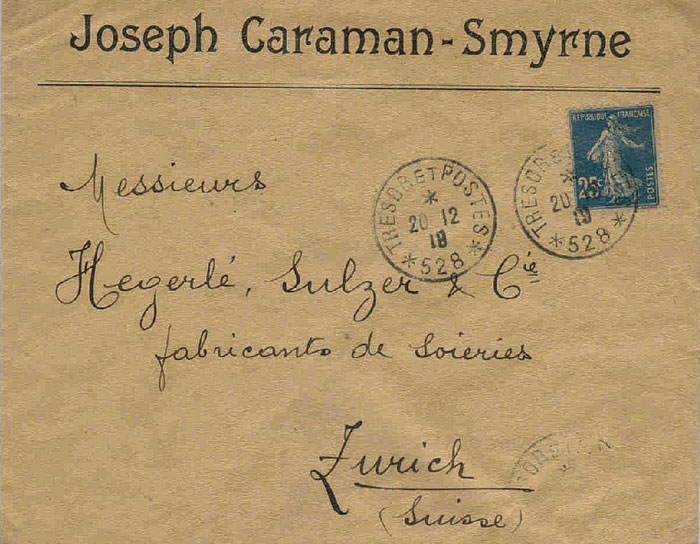 Joseph Caraman-Smyrne
REPUBLIQUE FRANCAISE
25c
POSTES
TRESOR ET POSTES
* 20 12
19
* 528 *
TRESOR ET
20
19
* 528 *
Messieurs
Hegerlé, Sulzer & Cie
fabricants de soieries
Zurich
(Suisse)